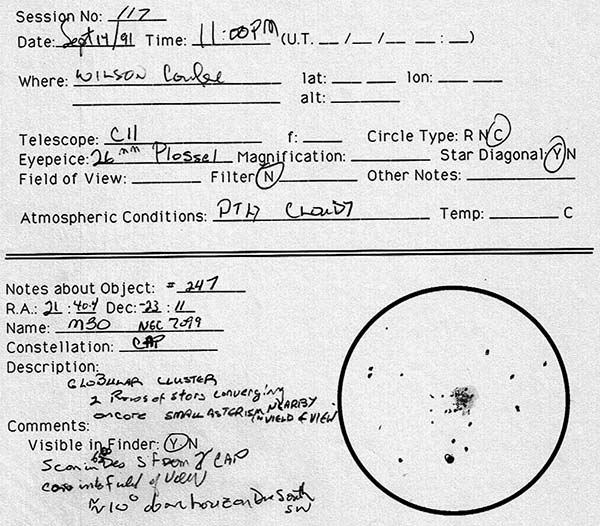 Session No: 117
Date: Sept 14/91 Time: 11:00PM (U.T. __/__/__ __:__)
Where: WILSON Coulee lat: ___ ___ lon: ___ ___
alt: ______
Telescope: C11 f: ____ Circle Type: R N C
Eyepeice: 26 mm Plossel Magnification: ______ Star Diagonal Y N
Field of View: ______ Filter N ______ Other Notes: ______
Atmospheric Conditions: PTLY CLOUDY Temp: ______ C
Notes about Object: # 247
R.A.: 21 : 40.4 Dec: -23 : 11
Name: M30 NGC 7099
Constellation: CAP
Description:
GLOBULAR CLUSTER
2 Rows of stars converging
on core SMALL ASTERISM NEARBY
IN FIELD OF VIEW
Comments:
Visible in Finder: Y N
Scan S from γ CAP
into field of view
≈10° above horizon Due South
SW